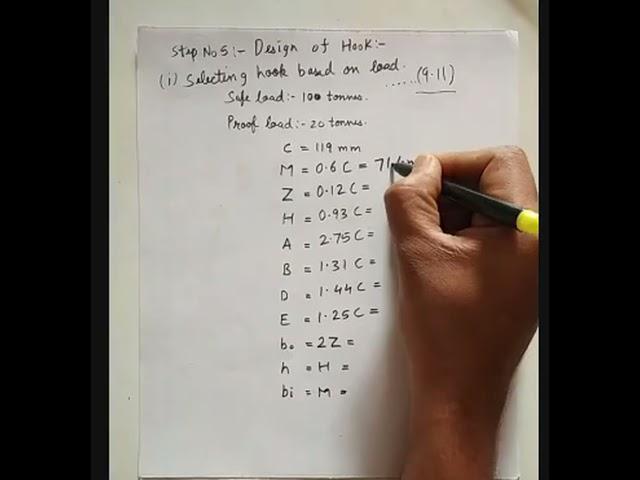 Step No 5:- Design of Hook:-
(i) Selecting hook based on load.
......(9.11)
Safe load:- 100 tonnes.
Proof load:- 20 tonnes.
C = 119 mm
M = 0.6 C = 71
Z = 0.12 C =
H = 0.93 C =
A = 2.75 C =
B = 1.31 C =
D = 1.44 C =
E = 1.25 C =
b₀ = 2Z =
h = H =
bi = M =